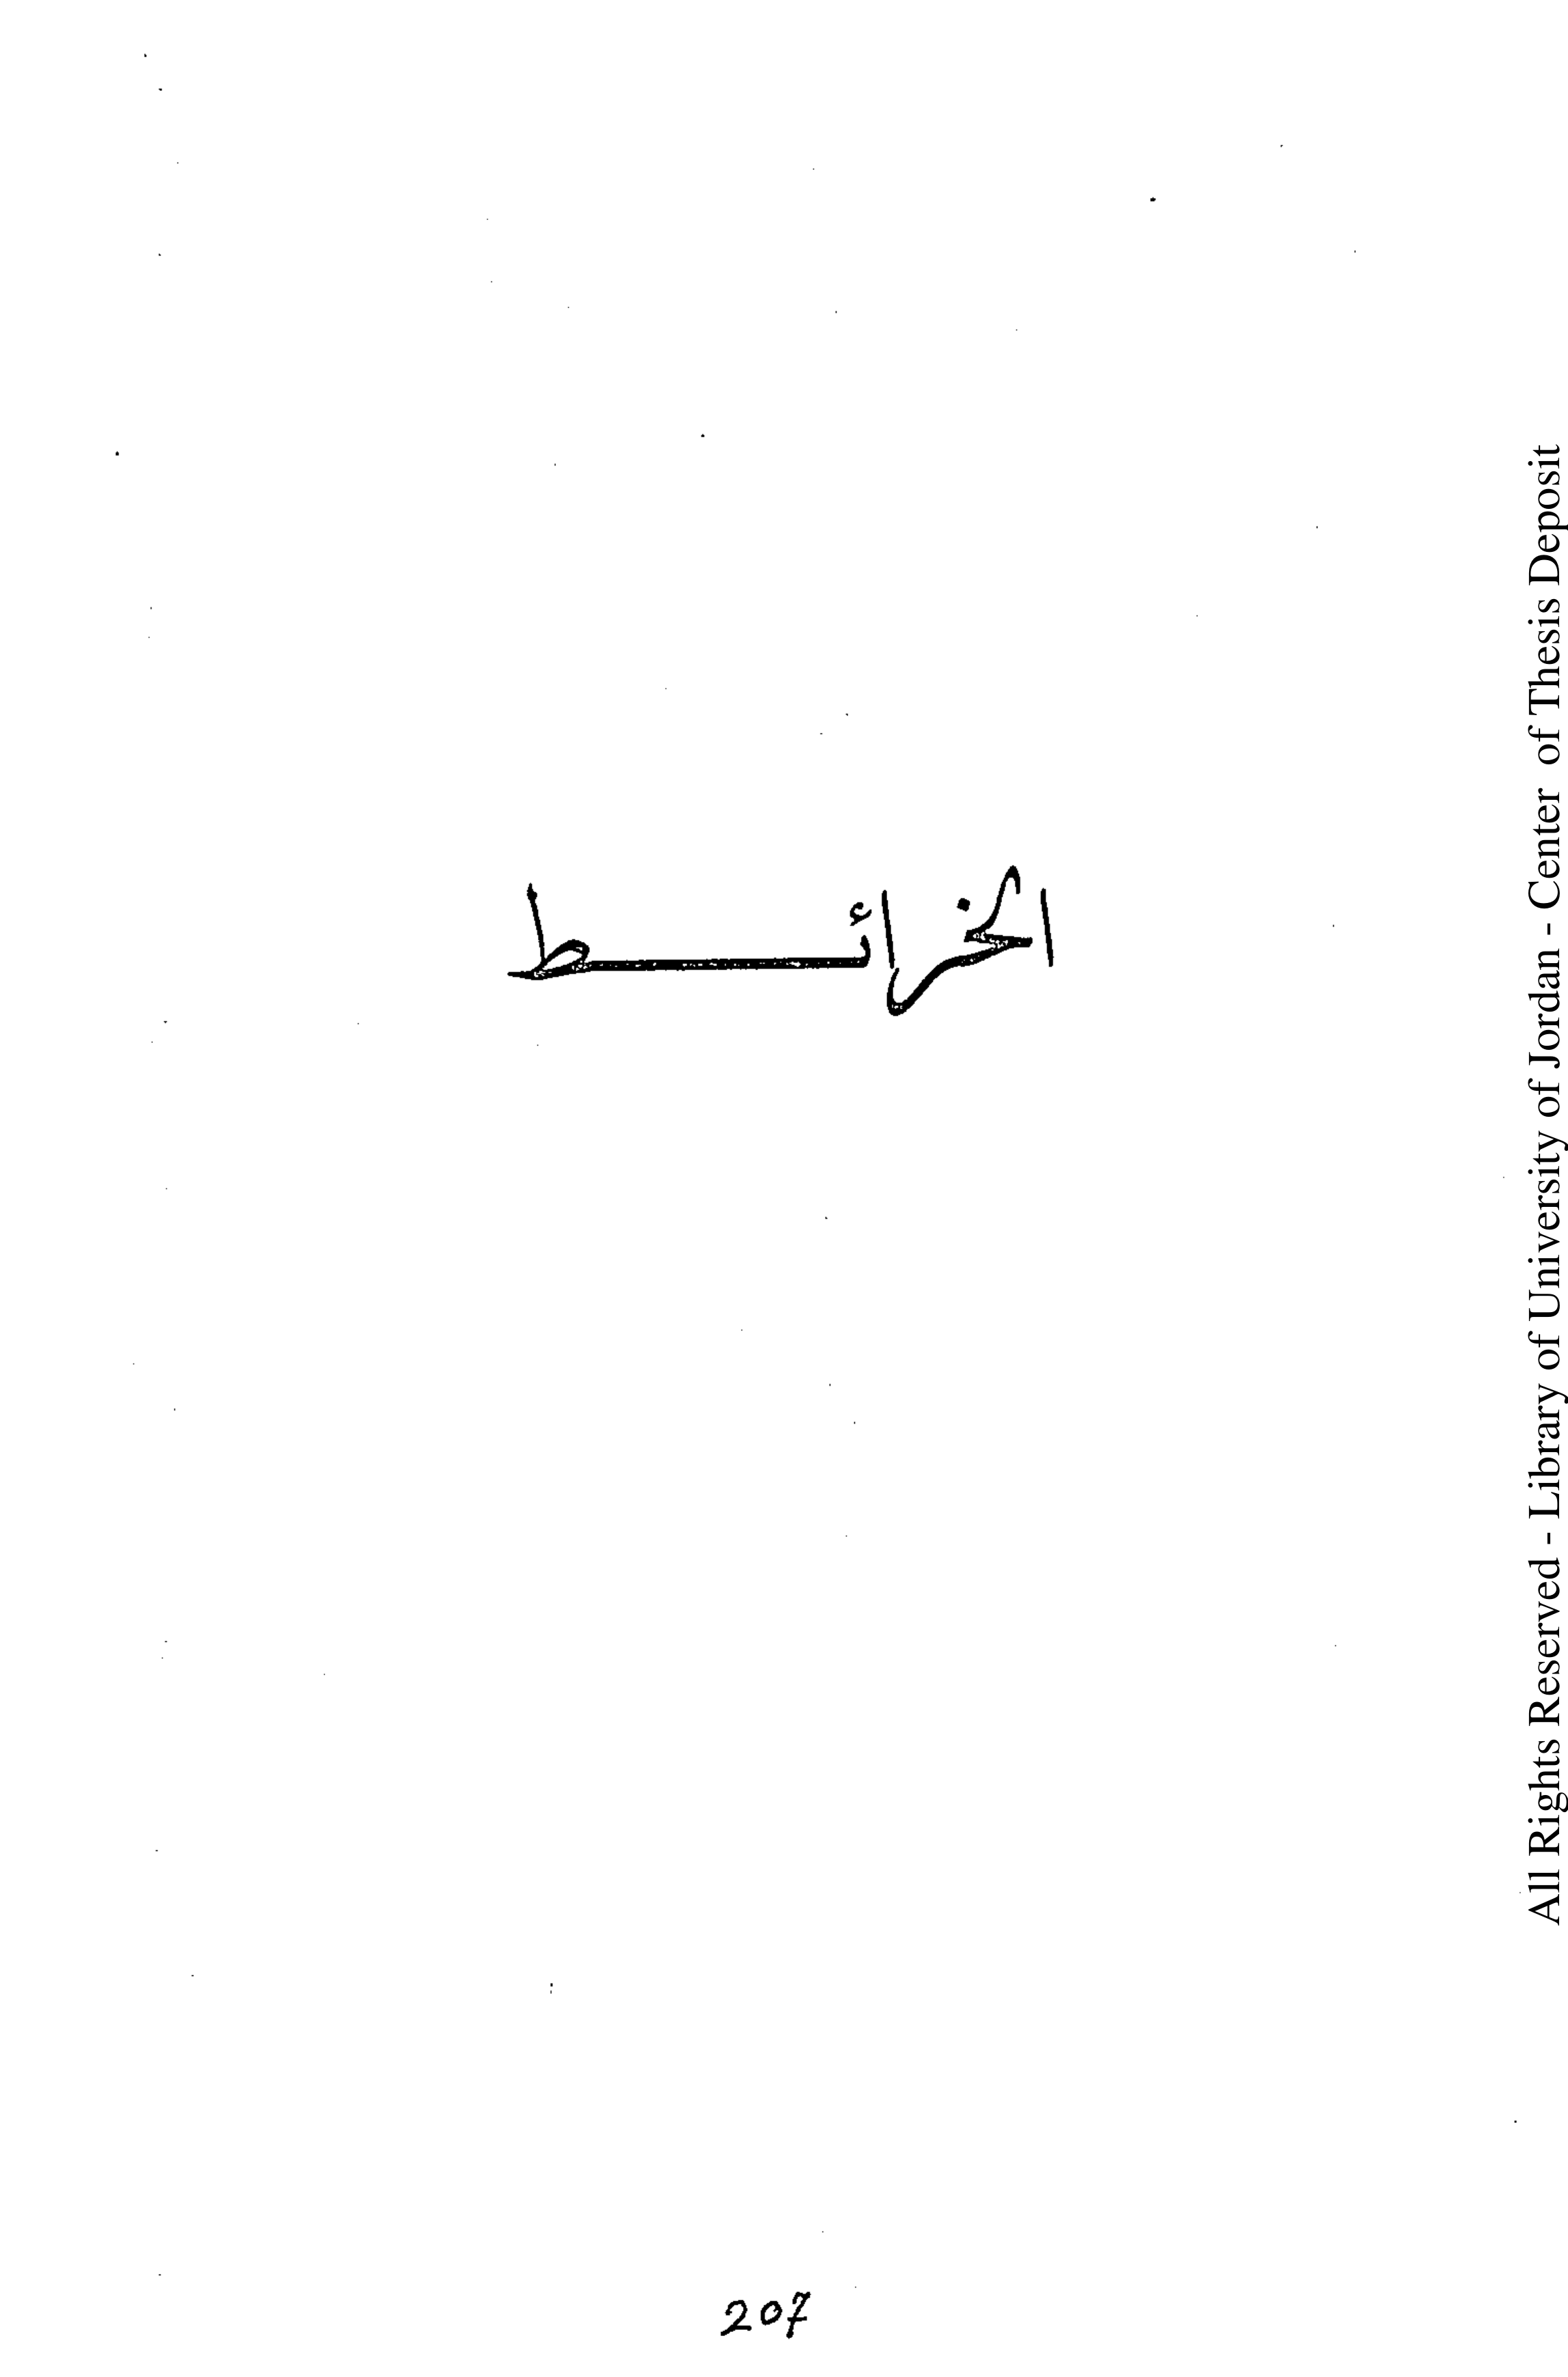 الخرائـــــــط
All Rights Reserved - Library of University of Jordan - Center of Thesis Deposit
207